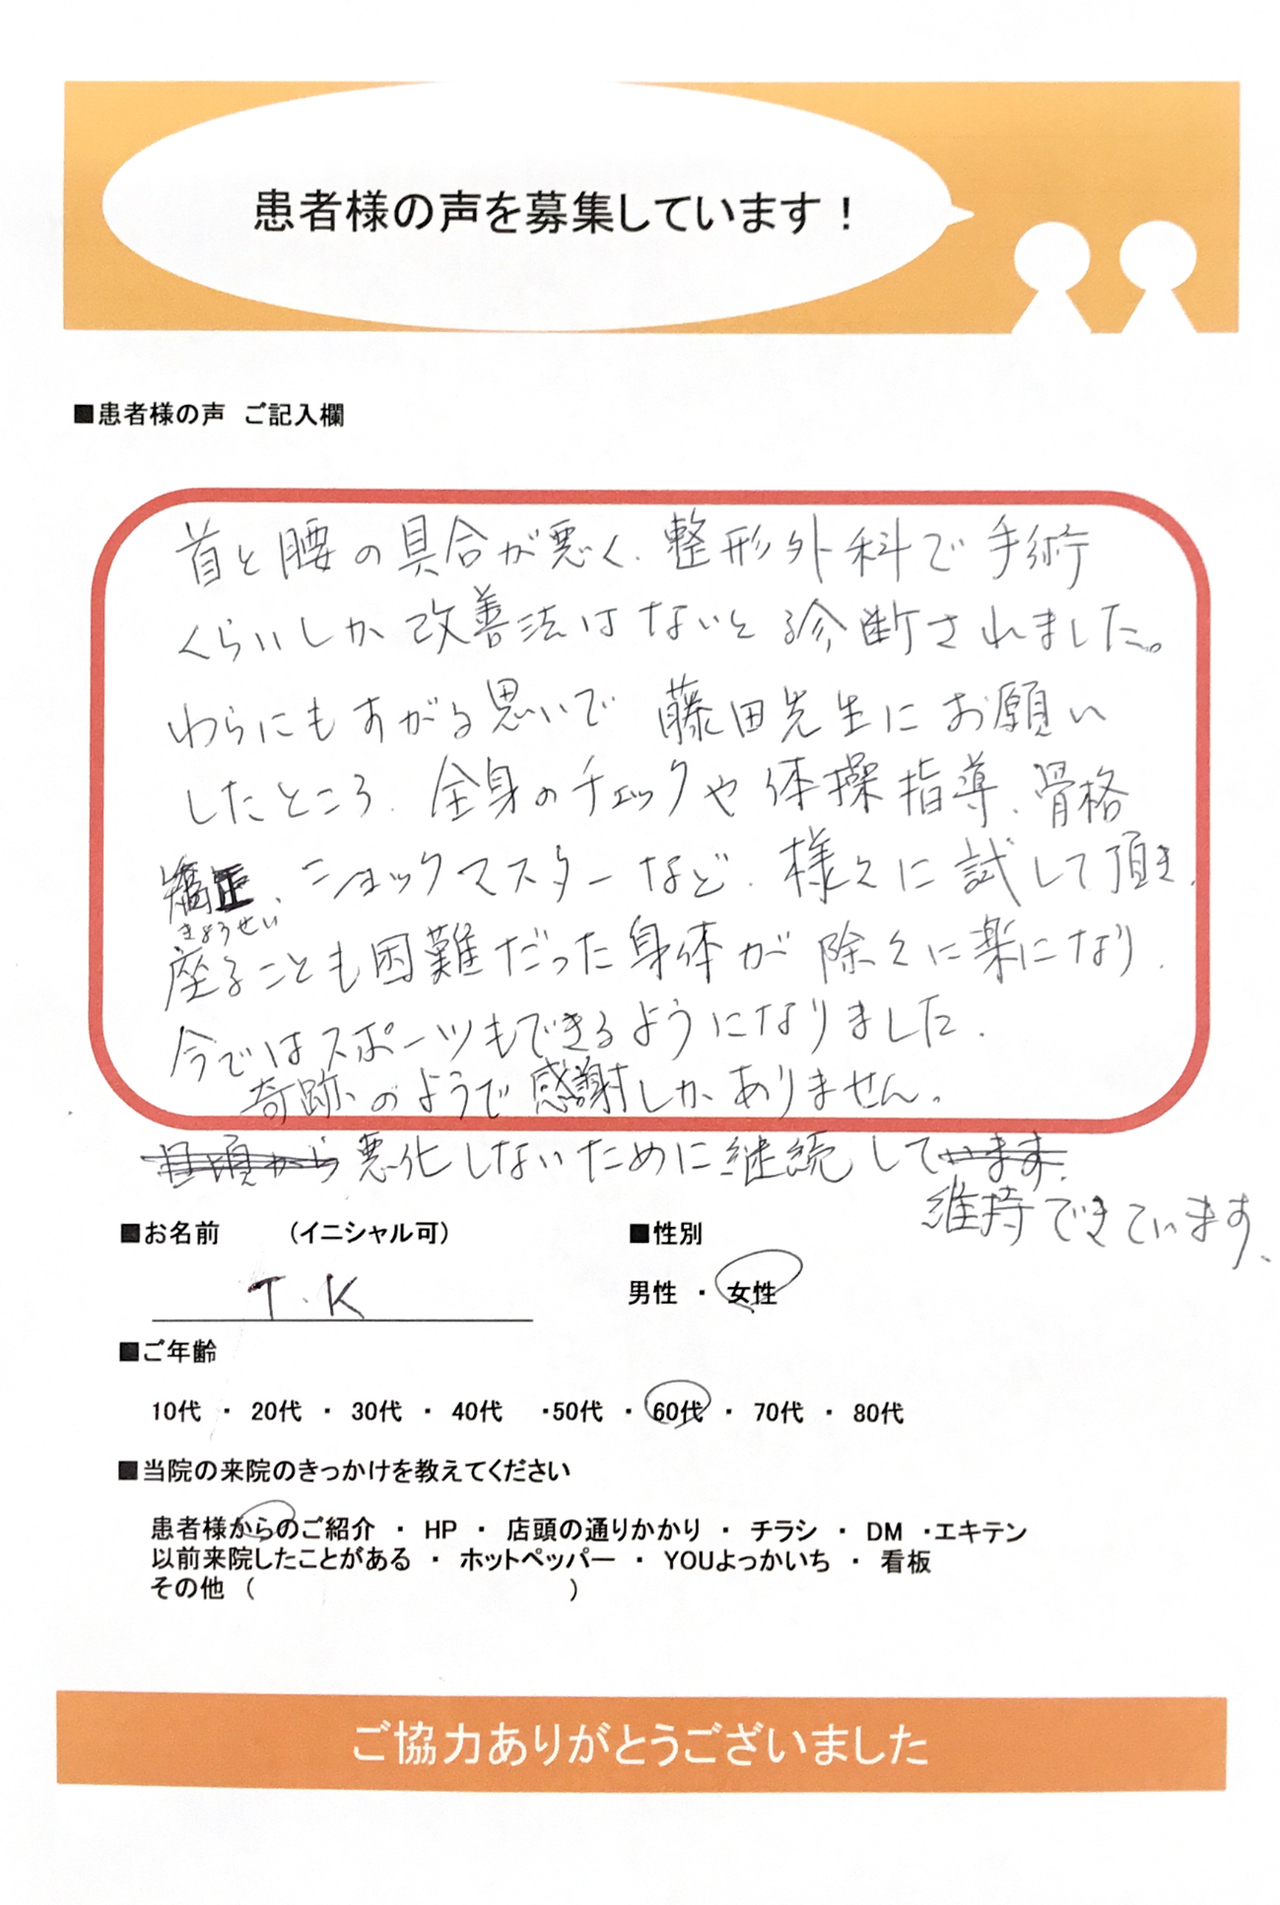 患者様の声を募集しています！
■患者様の声 ご記入欄
首と腰の具合が悪く、整形外科で手術
くらいしか改善法はないと診断されました。
わらにもすがる思いで藤田先生にお願い
したところ、全身のチェックや体操指導、骨格
矯正、ショックマスターなど、様々に試して頂き、
きょうせい
座ることも困難だった身体が除々に楽になり、
今ではスポーツもできるようになりました。
奇跡のようで感謝しかありません。
日頃から悪化しないために継続しています。
維持できています、
■お名前 （イニシャル可） ■性別
T.K 男性 ・ 女性
■ご年齢
10代 ・ 20代 ・ 30代 ・ 40代 ・50代 ・ 60代 ・ 70代 ・ 80代
■当院の来院のきっかけを教えてください
患者様からのご紹介 ・ HP ・ 店頭の通りかかり ・ チラシ ・ DM ・エキテン
以前来院したことがある ・ ホットペッパー ・ YOUよっかいち ・ 看板
その他 （ ）
ご協力ありがとうございました